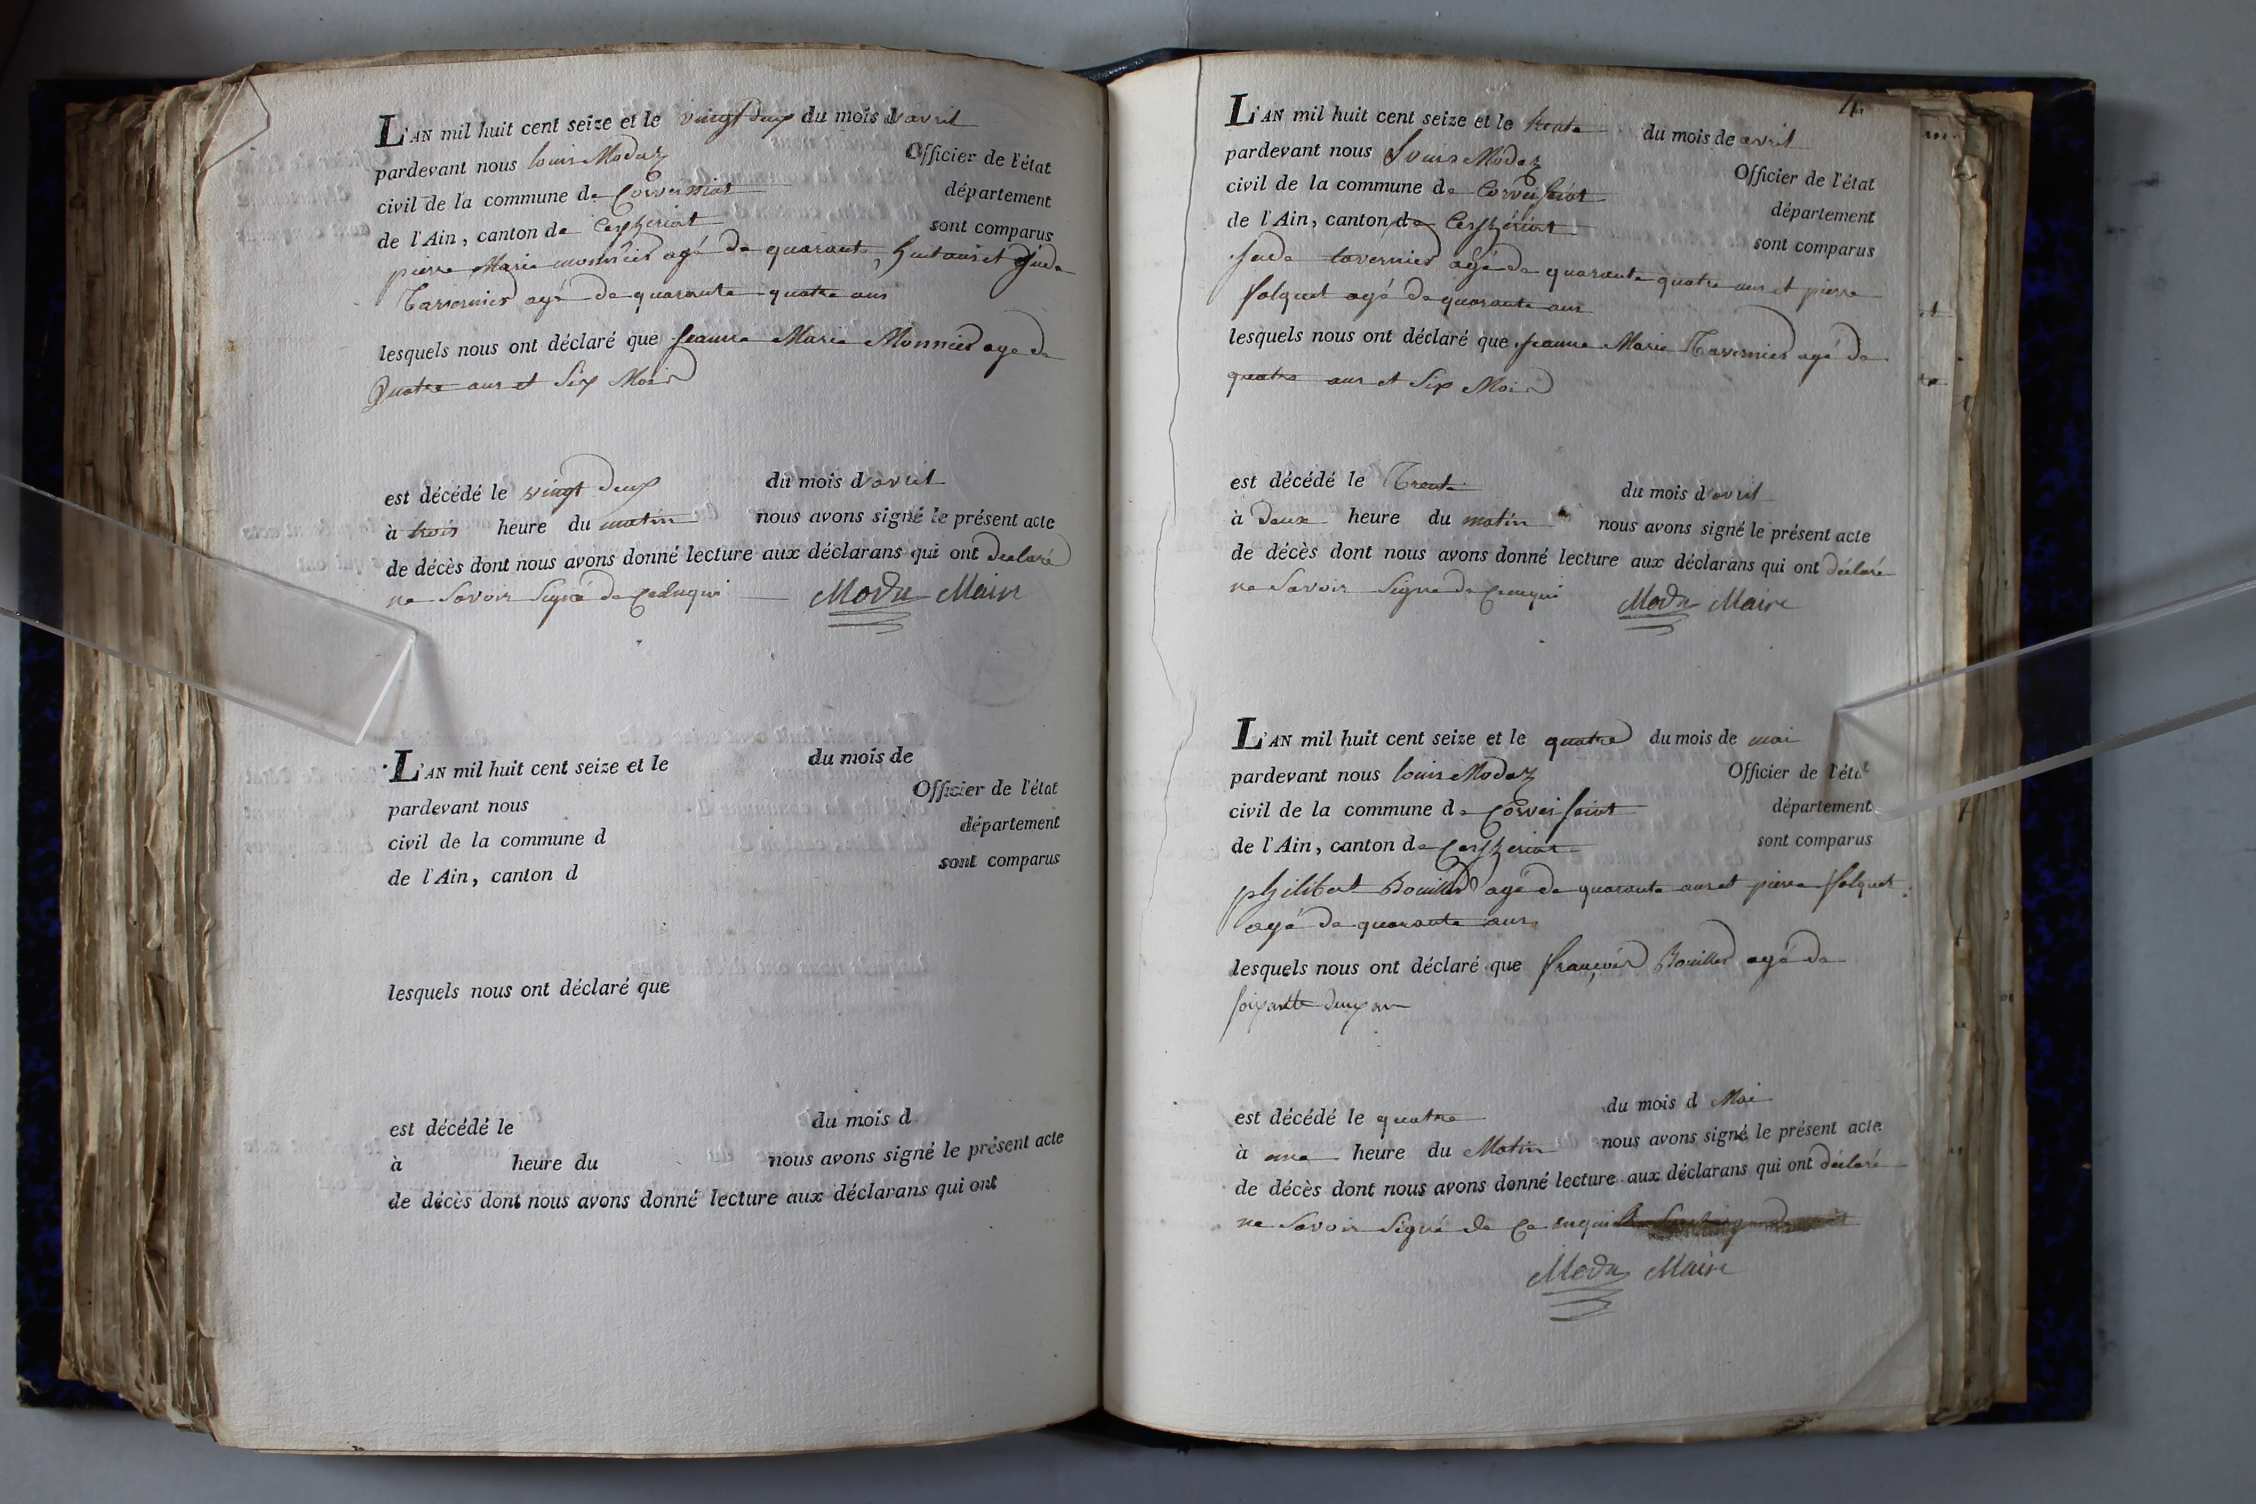 L'AN mil huit cent seize et le vingt deux du mois d'avril
pardevant nous louis Modaz Officier de l'état
civil de la commune de Corveissiat département
de l'Ain, canton de Ceyzeriat sont comparus
pierre Marie monnier agé de quarante huit ans et Jude
Tavernier agé de quarante quatre ans
lesquels nous ont déclaré que jeanne Marie Monnier age de
quatre ans et six Mois
est décédé le vingt deux du mois d'avril
à trois heure du matin nous avons signé le présent acte
de décès dont nous avons donné lecture aux déclarans qui ont déclaré
ne savoir signé de ce enquis Modaz Maire
L'AN mil huit cent seize et le du mois de
pardevant nous Officier de l'état
civil de la commune d département
de l'Ain, canton d sont comparus
lesquels nous ont déclaré que
est décédé le du mois d
à heure du nous avons signé le présent acte
de décès dont nous avons donné lecture aux déclarans qui ont
4.
L'AN mil huit cent seize et le trente du mois de avril
pardevant nous Louis Modaz Officier de l'état
civil de la commune de Corveissiat département
de l'Ain, canton de Ceyzériat sont comparus
jude tavernier agé de quarante quatre ans et pierre
folquet agé de quarante ans
lesquels nous ont déclaré que jeanne Marie Tavernier agé de
quatre ans et six Mois
est décédé le Trente du mois d'avril
à deux heure du matin nous avons signé le présent acte
de décès dont nous avons donné lecture aux déclarans qui ont déclaré
ne savoir signé de ce enquis Modaz Maire
L'AN mil huit cent seize et le quatre du mois de mai
pardevant nous louis Modaz Officier de l'état
civil de la commune de Corveissiat département
de l'Ain, canton de Ceyzeriat sont comparus
philibert Bouiller agé de quarante ans et pierre folquet
agé de quarante ans
lesquels nous ont déclaré que françois Bouiller agé de
soixante deux ans
est décédé le quatre du mois d Mai
à une heure du Matin nous avons signé le présent acte
de décès dont nous avons donné lecture aux déclarans qui ont déclaré
ne savoir signé de ce enquis
Modaz Maire